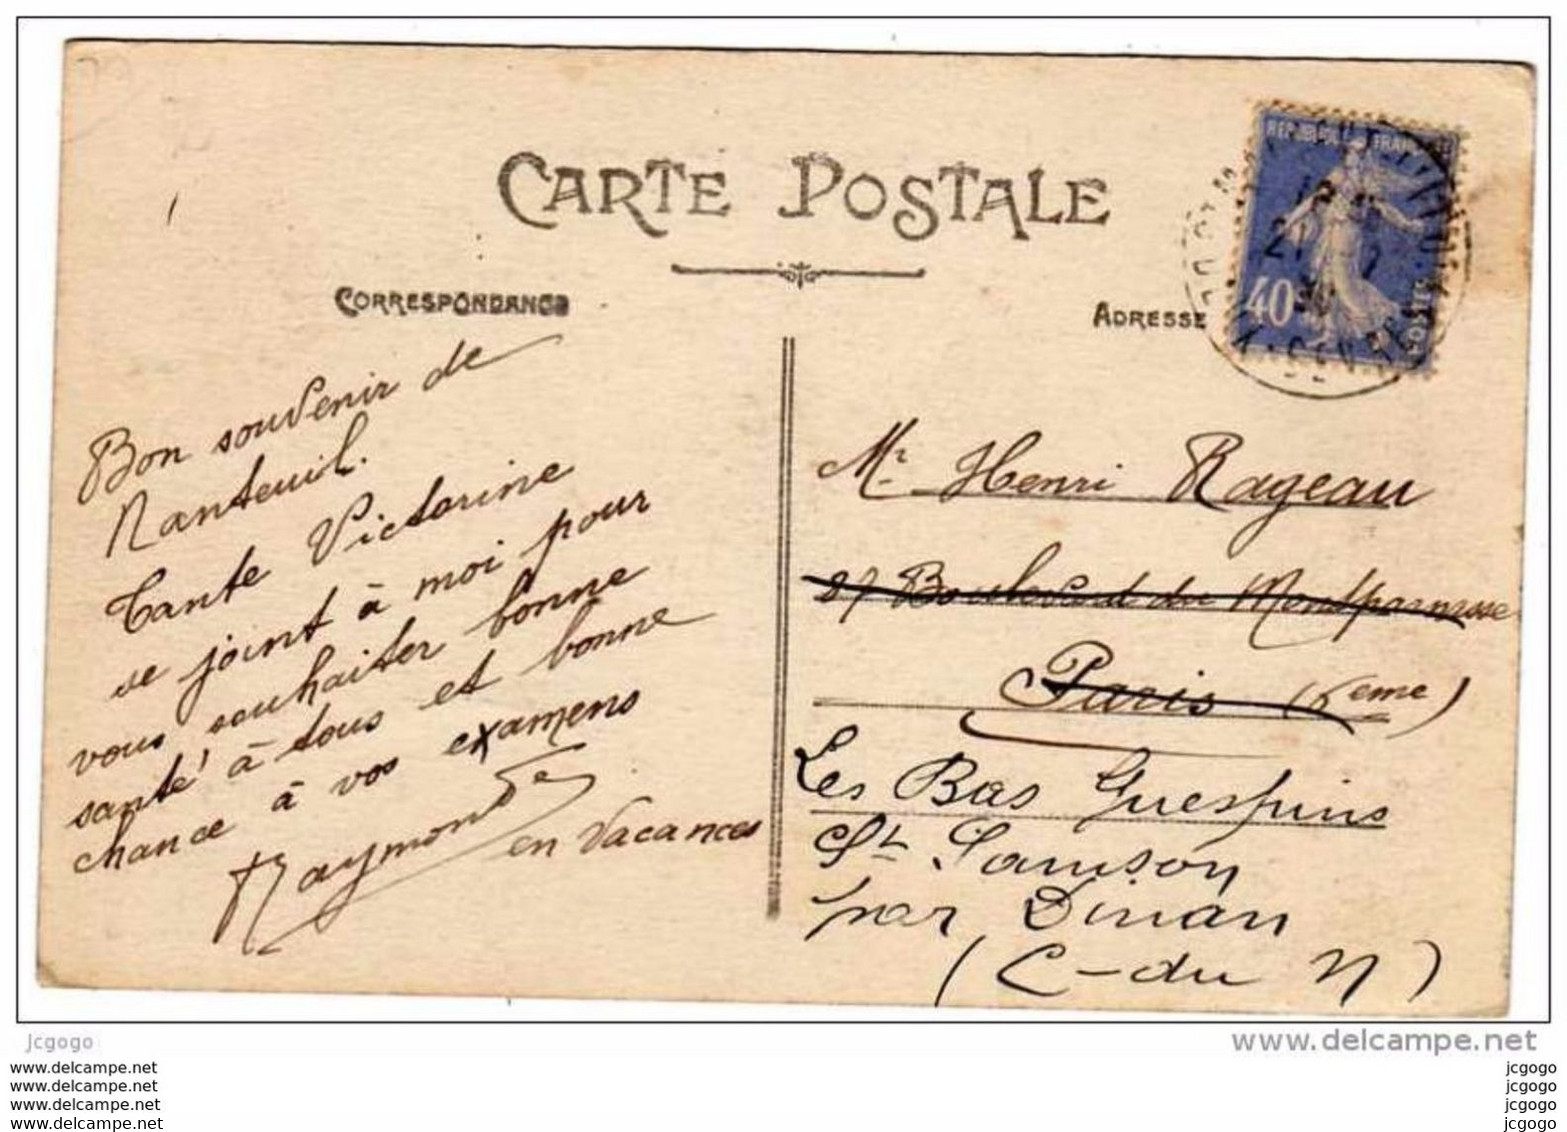 CARTE POSTALE
CORRESPONDANCE
ADRESSE
40
POSTES
21
Bon souvenir de
Nanteuil.
Tante Victorine
se joint à moi pour
vous souhaiter bonne
santé à tous et bonne
chance à vos examens
Raymonde
en vacances
Mr Henri Rageau
87 Boulevard du Montparnasse
Paris (6eme)
Les Bas Guespins
St Samson
par Dinan
(C-du N)
jcgogo
www.delcampe.net
www.delcampe.net jcgogo
www.delcampe.net jcgogo
www.delcampe.net jcgogo
www.delcampe.net jcgogo